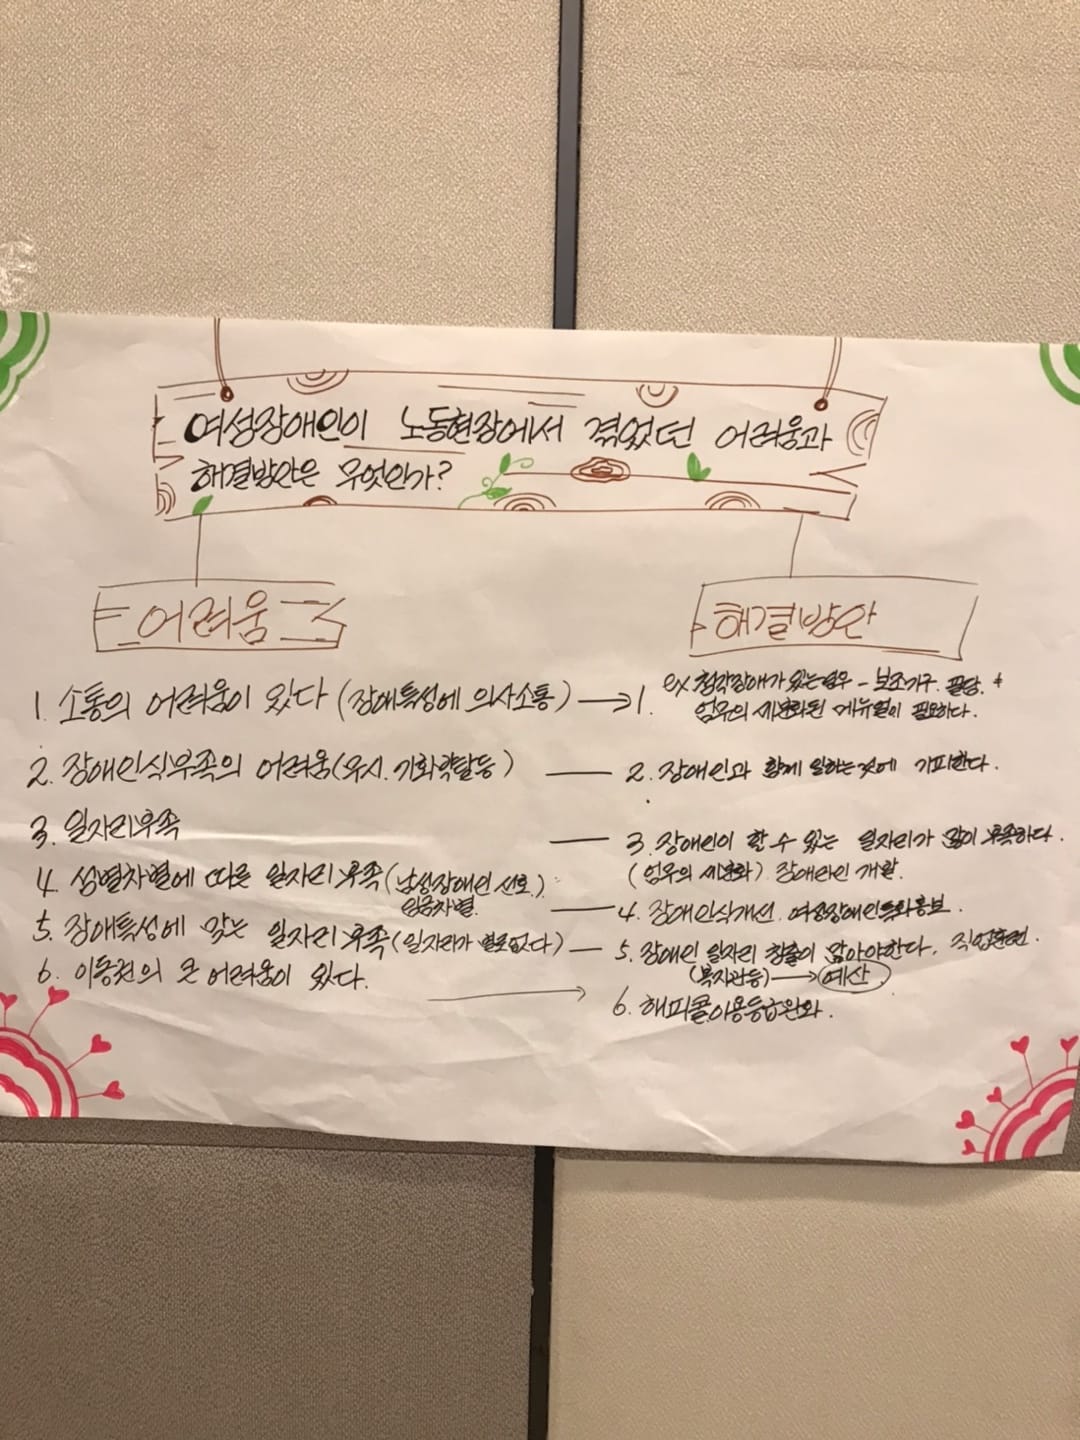 여성장애인이 노동현장에서 겪었던 어려움과
해결방안은 무엇인가?
어려움
해결방안
1. 소통의 어려움이 있다 (장애특성에 의사소통) → 1. ex 청각장애가 있는경우 - 보조기구. 필담. +
업무의 세분화된 메뉴얼이 필요하다.
2. 장애인식부족의 어려움(무시. 기회박탈등) — 2. 장애인과 함께 일하는것에 기피한다.
3. 일자리부족 — 3. 장애인이 할 수 있는 일자리가 많이 부족하다.
(업무의 세분화) 장애라인 개발.
4. 성별차별에 따른 일자리 부족(남성장애인 선호)
임금차별. — 4. 장애인식개선. 여성장애인특화홍보.
5. 장애특성에 맞는 일자리 부족(일자리가 별로없다) — 5. 장애인 일자리 창출이 많아야한다. 직업훈련.
(복지관등) → 예산
6. 이동권의 큰 어려움이 있다. → 6. 해피콜이용등급완화.